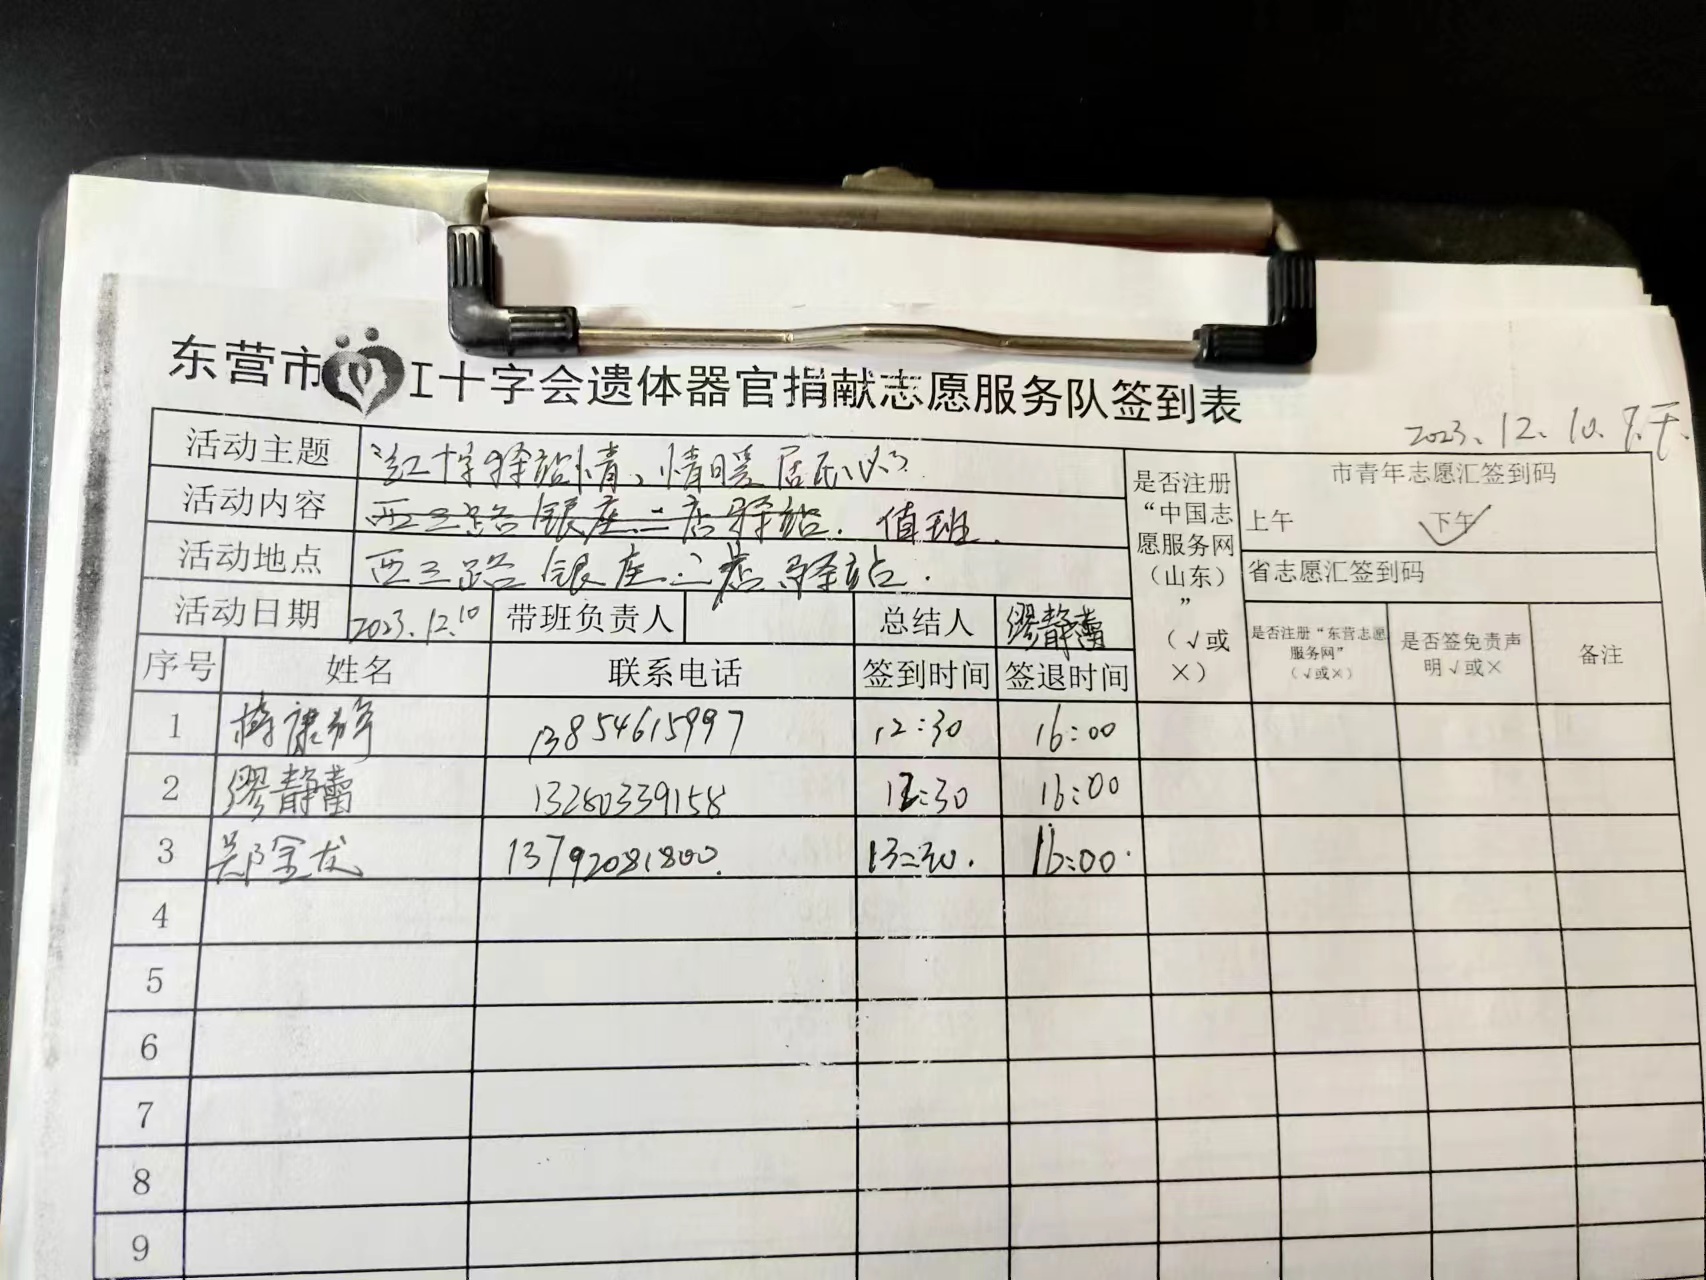 东营市工十字会遗体器官捐献志愿服务队签到表
2023.12.10.
活动主题 红十字驿站情、情暖居民心
是否注册“中国志愿服务网（山东）”（√或×）
市青年志愿汇签到码
活动内容 西三路银座二店驿站. 值班.
上午 下午
活动地点 西三路银座二店驿站.
省志愿汇签到码
活动日期 2023.12.10 带班负责人 总结人 缪静蕾
是否注册“东营志愿服务网”（√或×） 是否签免责声明√或× 备注
序号 姓名 联系电话 签到时间 签退时间
1 13854615997 12:30 16:00
2 缪静蕾 13280339158 12:30 16:00
3 郑金龙 13792081800. 13:30. 16:00.
4
5
6
7
8
9